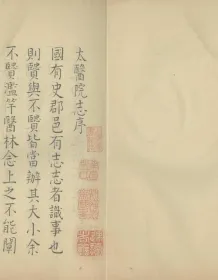 太醫院志序
國有史郡邑有志志者識事也
則賢與不賢皆當辦其大小余
不賢濫竽醫林念上之不能闡